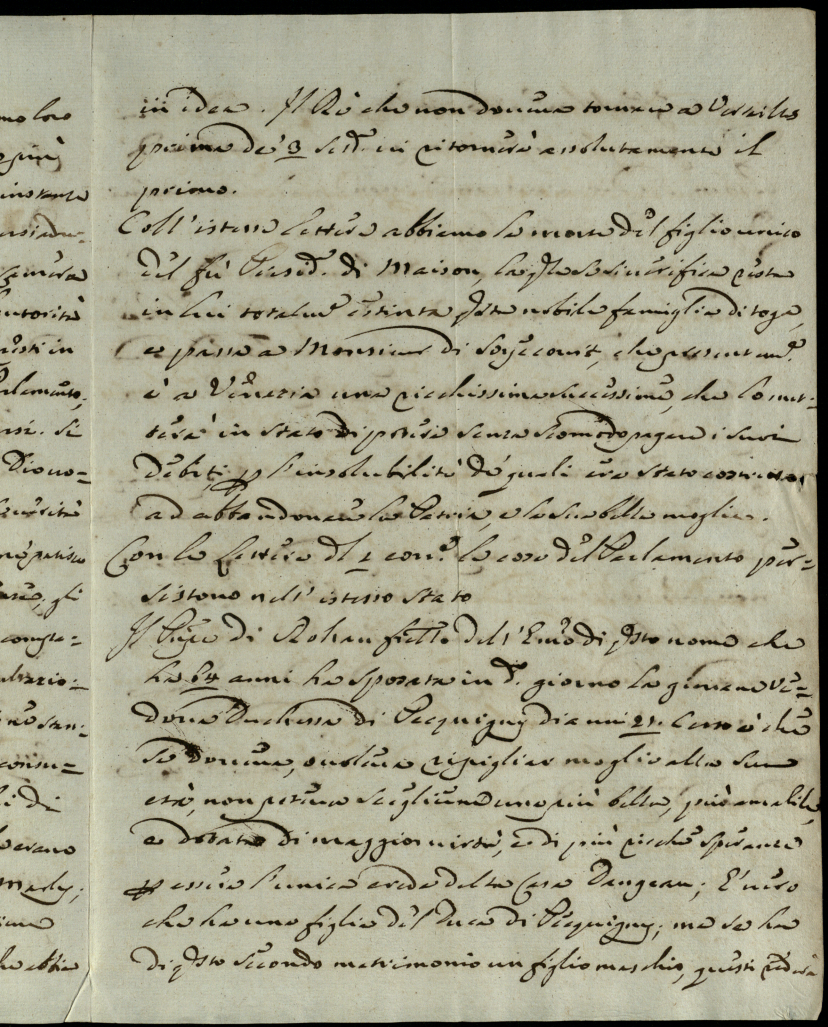 in idea. Il Rè che non doveva tornare a Versailles
prima de' 3 Sud. vi ritornerà assolutamente il
primo.
Coll'istessa lettera abbiamo la morte del figlio unico
del fù Presid. di Maison, la qle si
in lui totalm.e estinta qsta nobile famiglia di toga,
e passa a Monsieur di Soyecourt, che presentem.e
è a Venezia una ricchissima successione, che lo met=
terà in stato di potere senza scomodo pagare i suoi
debiti, p l'insolubilità de' quali era stato costretto
ad abbandonare la Patria, e la sua bella moglie.
Con le lettere dl 2 corr.e le cose del Parlamento per=
sistono nell'istesso stato
Il Pnpe di Rohan fratello dell'Emo di qsto nome che
ha 64 anni ha sposata in d.o giorno la giovane ve=
dova Duchessa di Pecquigny di anni 21. Certo è che
se doveva, o voleva ripigliar moglie alla sua
età, non poteva scegliere una più bella, più amabile,
e dotata di maggior virtù, e di più ricche speranze
p essere l'unica erede della Casa Dangeau; E' vero
che ha una figlia del Duca di Pecquigny; ma se ha
di qsto secondo matrimonio un figlio maschio, questi
mo loro
più
Camera
autorità
in
Parlamento,
Si
Diono=
gli
=
=
=
=
di
erano
Marly;
abbia